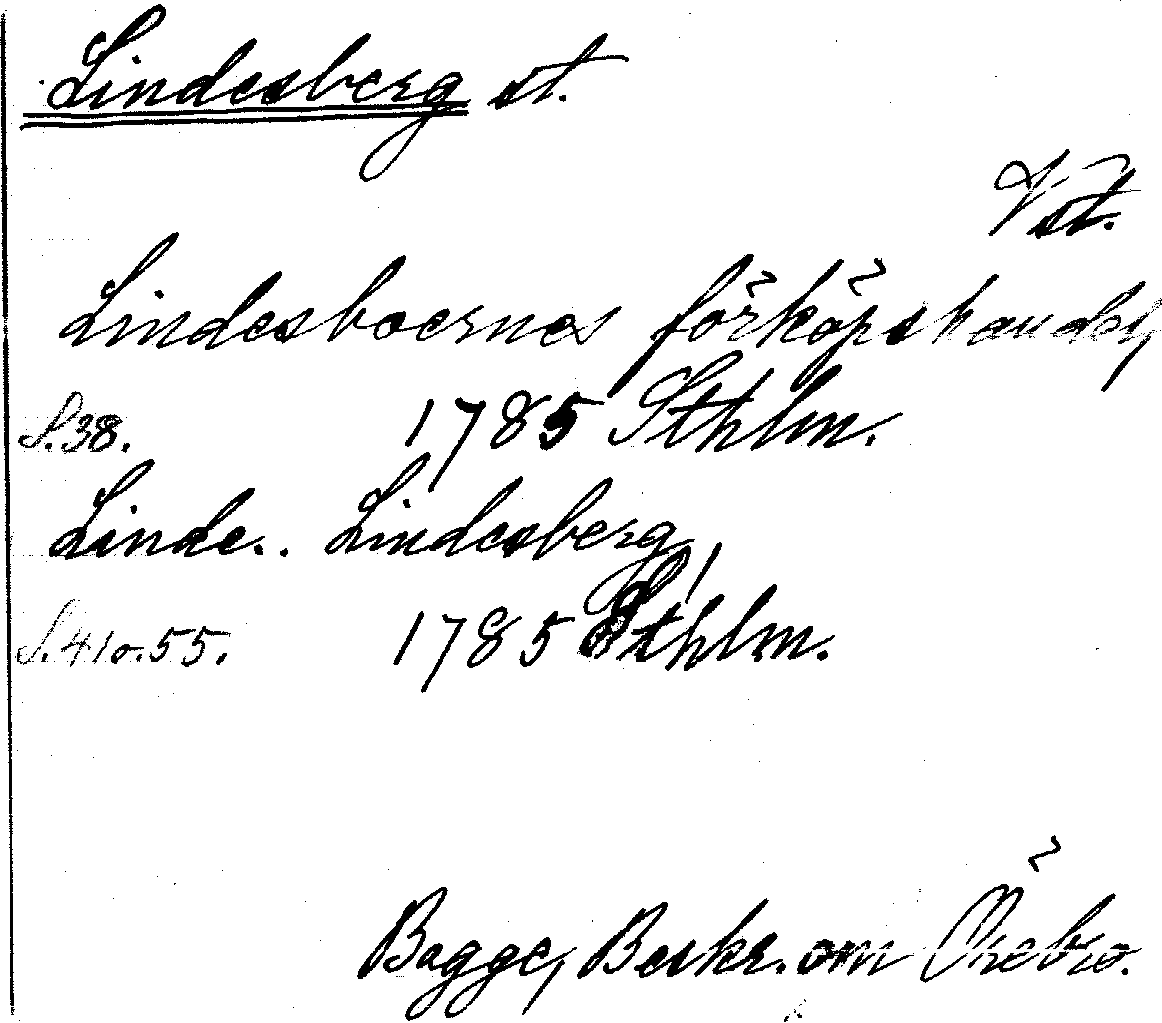 Lindesberg st.
Vst.
Lindesboernes förköpshandel,
S.38. 1785 Sthlm.
Linde.. Lindesberg,
S.41o.55. 1785 Sthlm.
Bagge, Beskr. om Örebro.